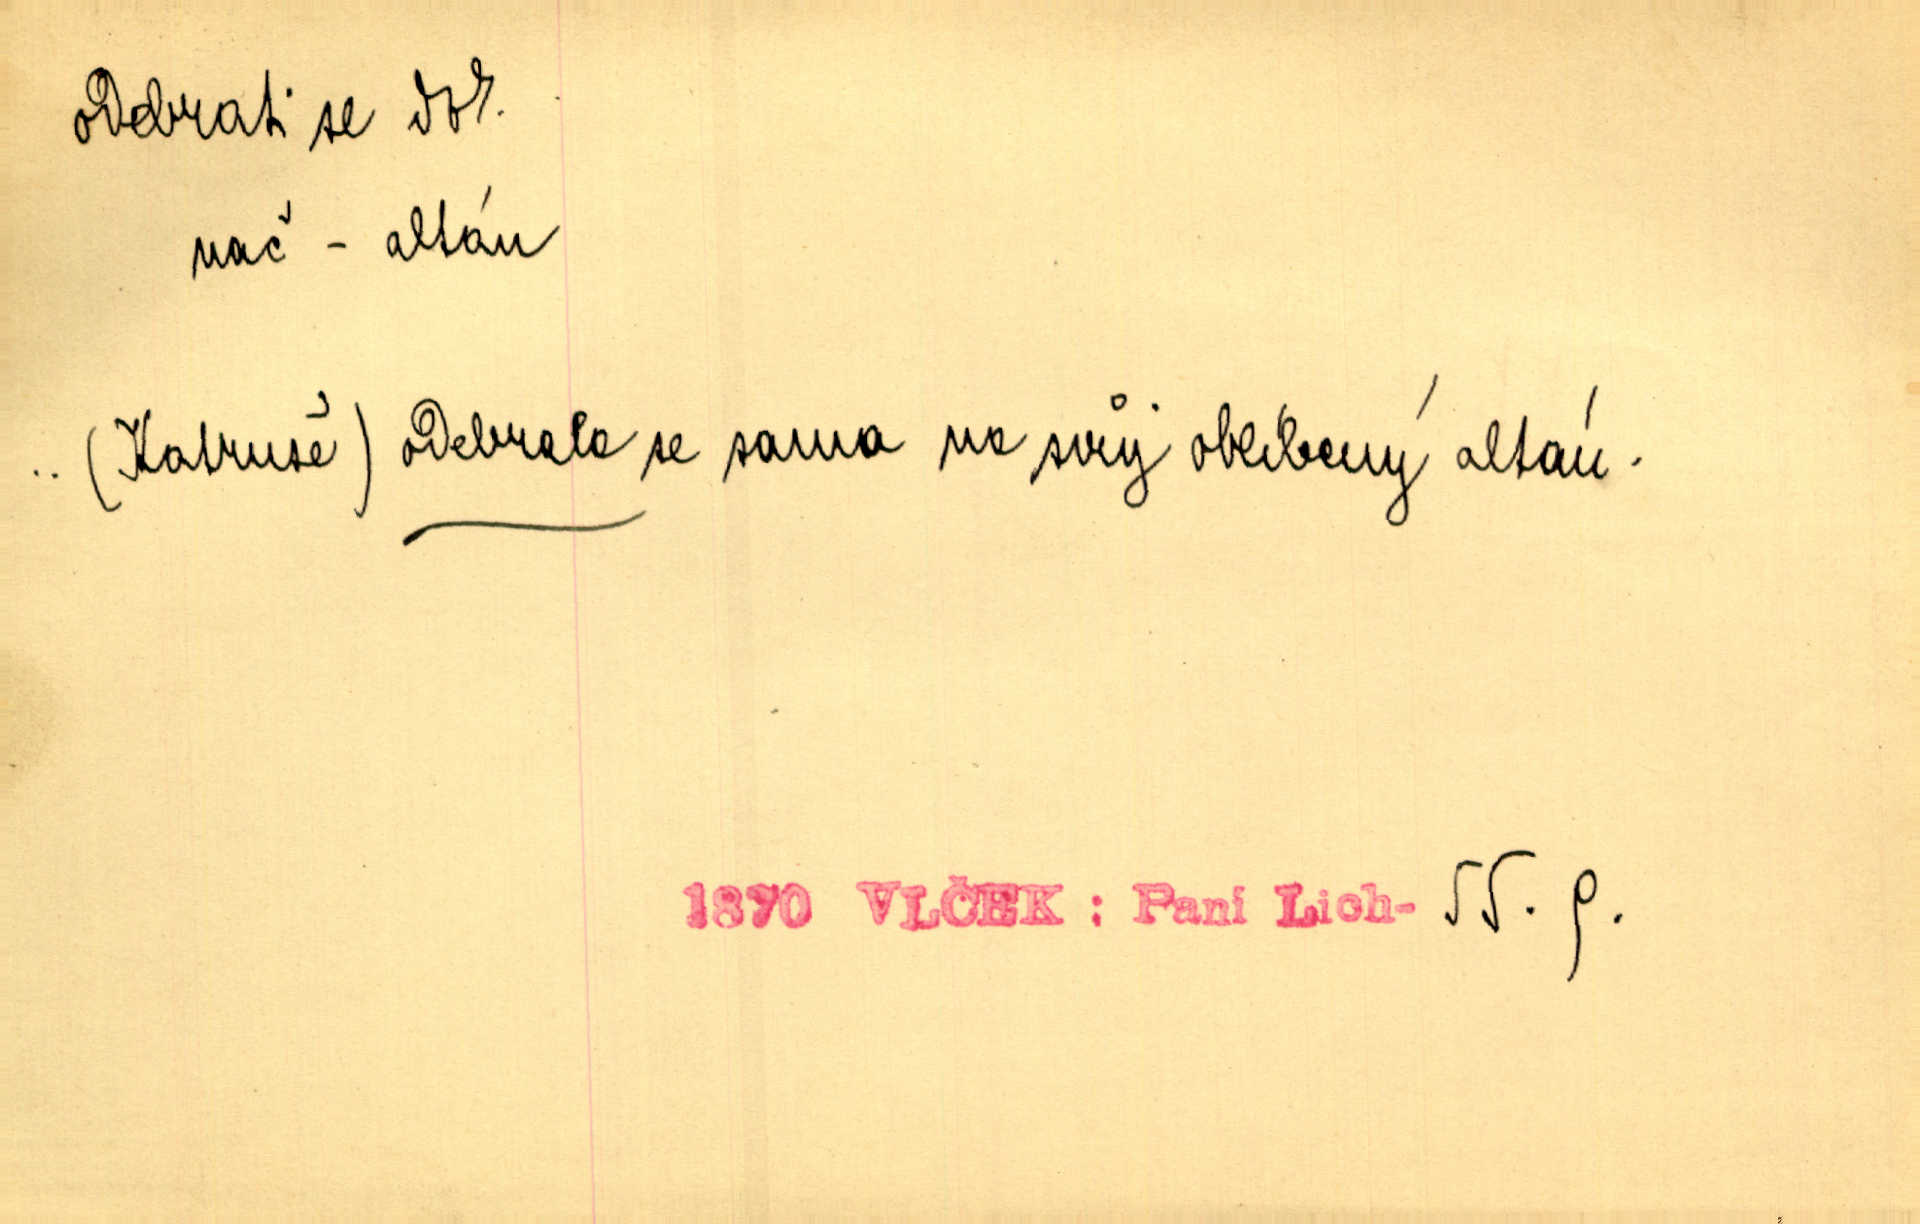 odebrati se dok.
nač - altán
.. (Katruše) odebrala se sama na svůj oblíbený altán.
1870 VLČEK : Paní Lich- 55. p.